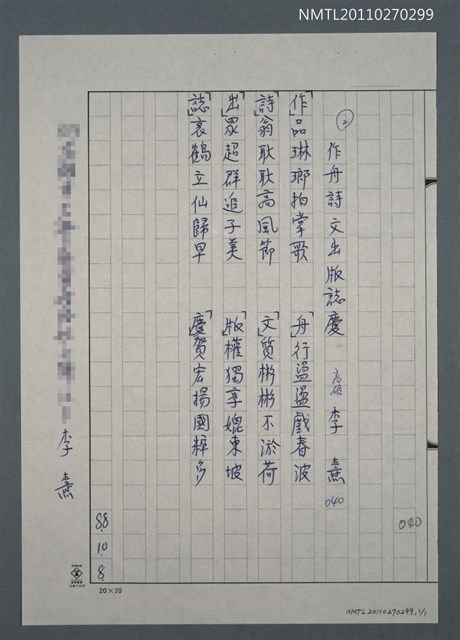 NMTL20110270299
040
② 作舟詩文出版誌慶 高雄 李熹 040
「作」品琳瑯拍掌歌 「舟」行盪盪戲春波
「詩」翁耿耿高風節 「文」質彬彬不淤荷
「出」眾超群追子美 「版」權獨享媲東坡
「誌」哀鶴立仙歸早 「慶」賀宏揚國粹多
88.10.8.
李熹
20×20
NMTL20110270299, 1/1